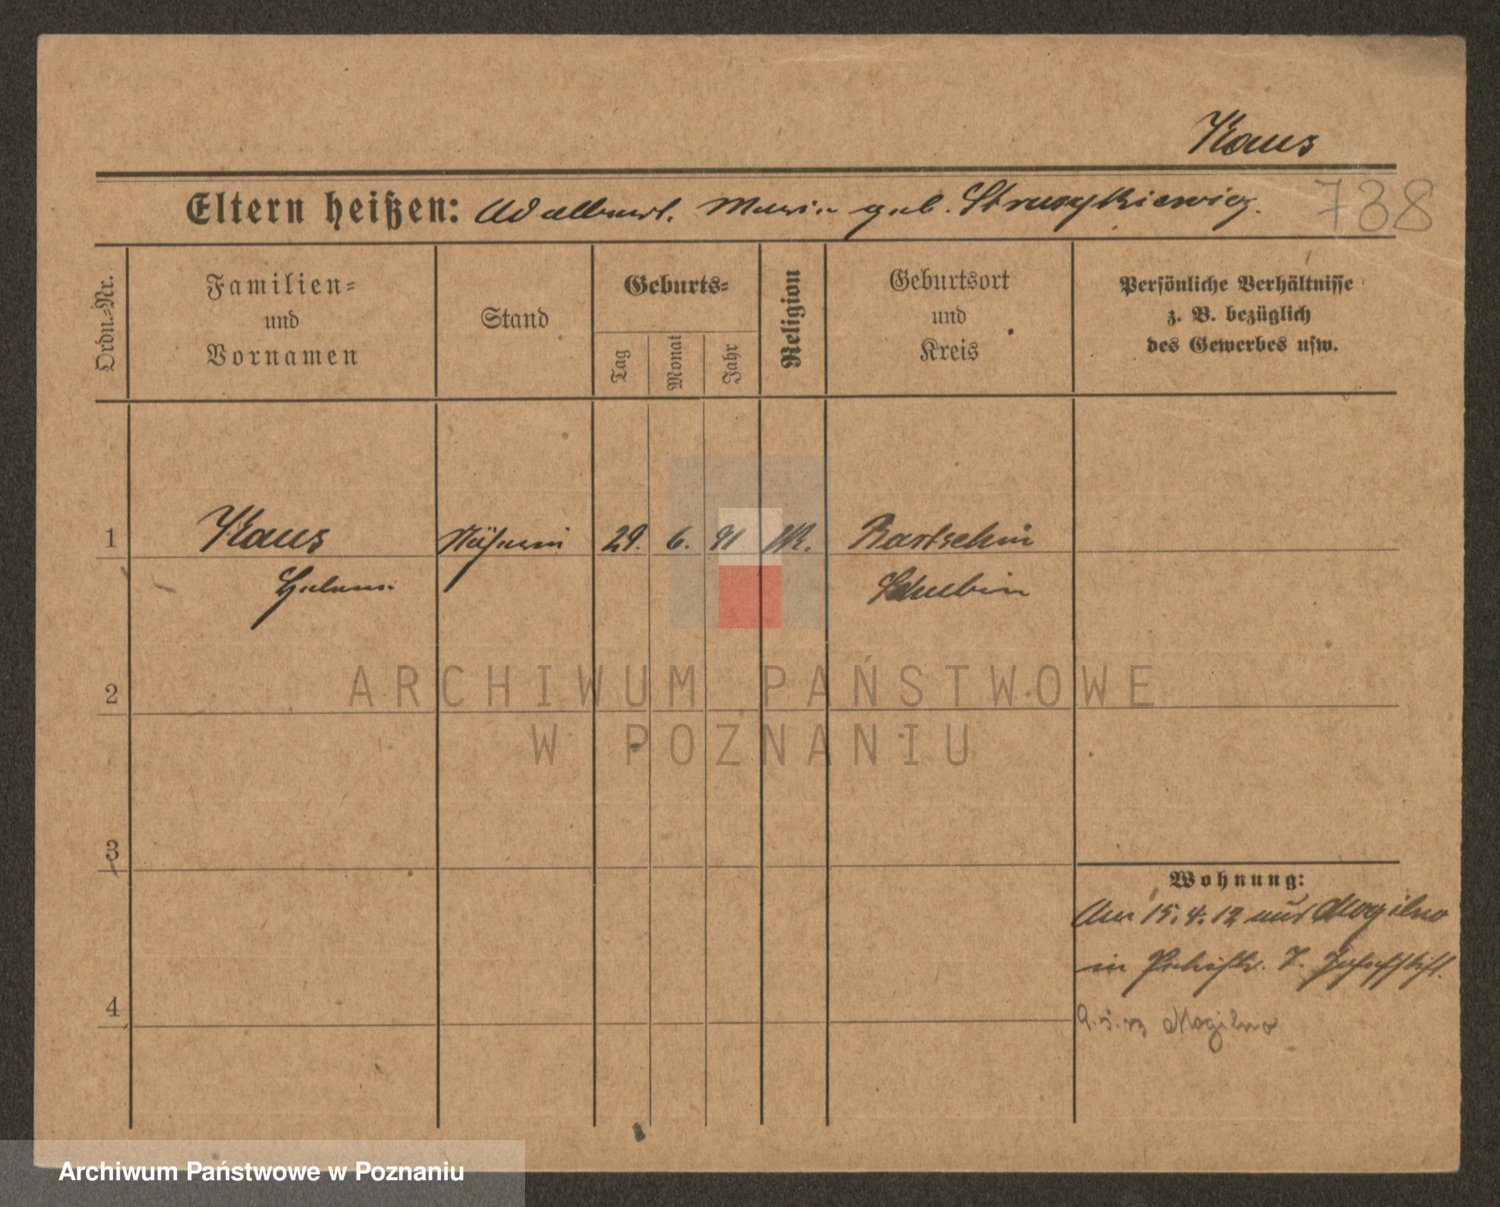 Klaus
Eltern heißen: Adalbert. Maria geb. Struzykiewicz.
738
Ordn.-Nr.
Familien-
und
Vornamen
Stand
Geburts-
Tag
Monat
Jahr
Religion
Geburtsort
und
Kreis
Persönliche Verhältnisse
z. B. bezüglich
des Gewerbes usw.
1
Klaus
Näherin
29. 6. 91
K.
Bartschin
Helene
Schubin
2
3
4
Wohnung:
Am 15.4.12 aus Mogilno
in 7. Josefstift.
9.5. Mogilno
ARCHIWUM PAŃSTWOWE
W POZNANIU
Archiwum Państwowe w Poznaniu